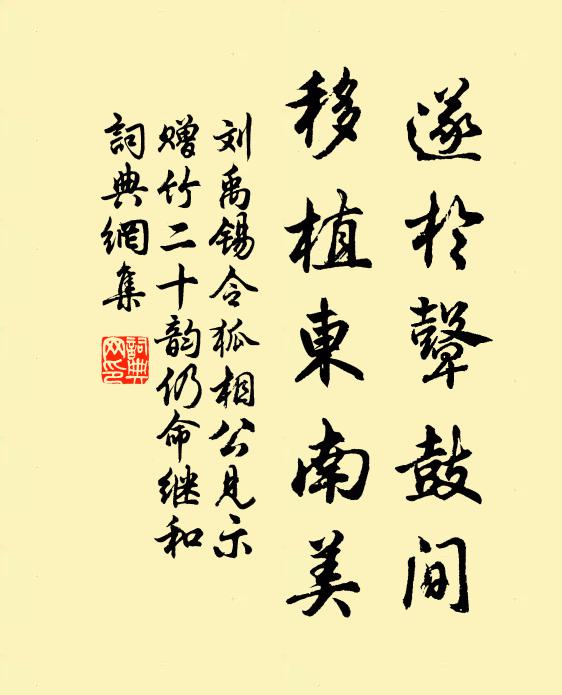 遂於鼙鼓间
移植東南美
刘禹锡令狐相公見示
赠竹二十韵仍命继和
詞典網集
詞典網印